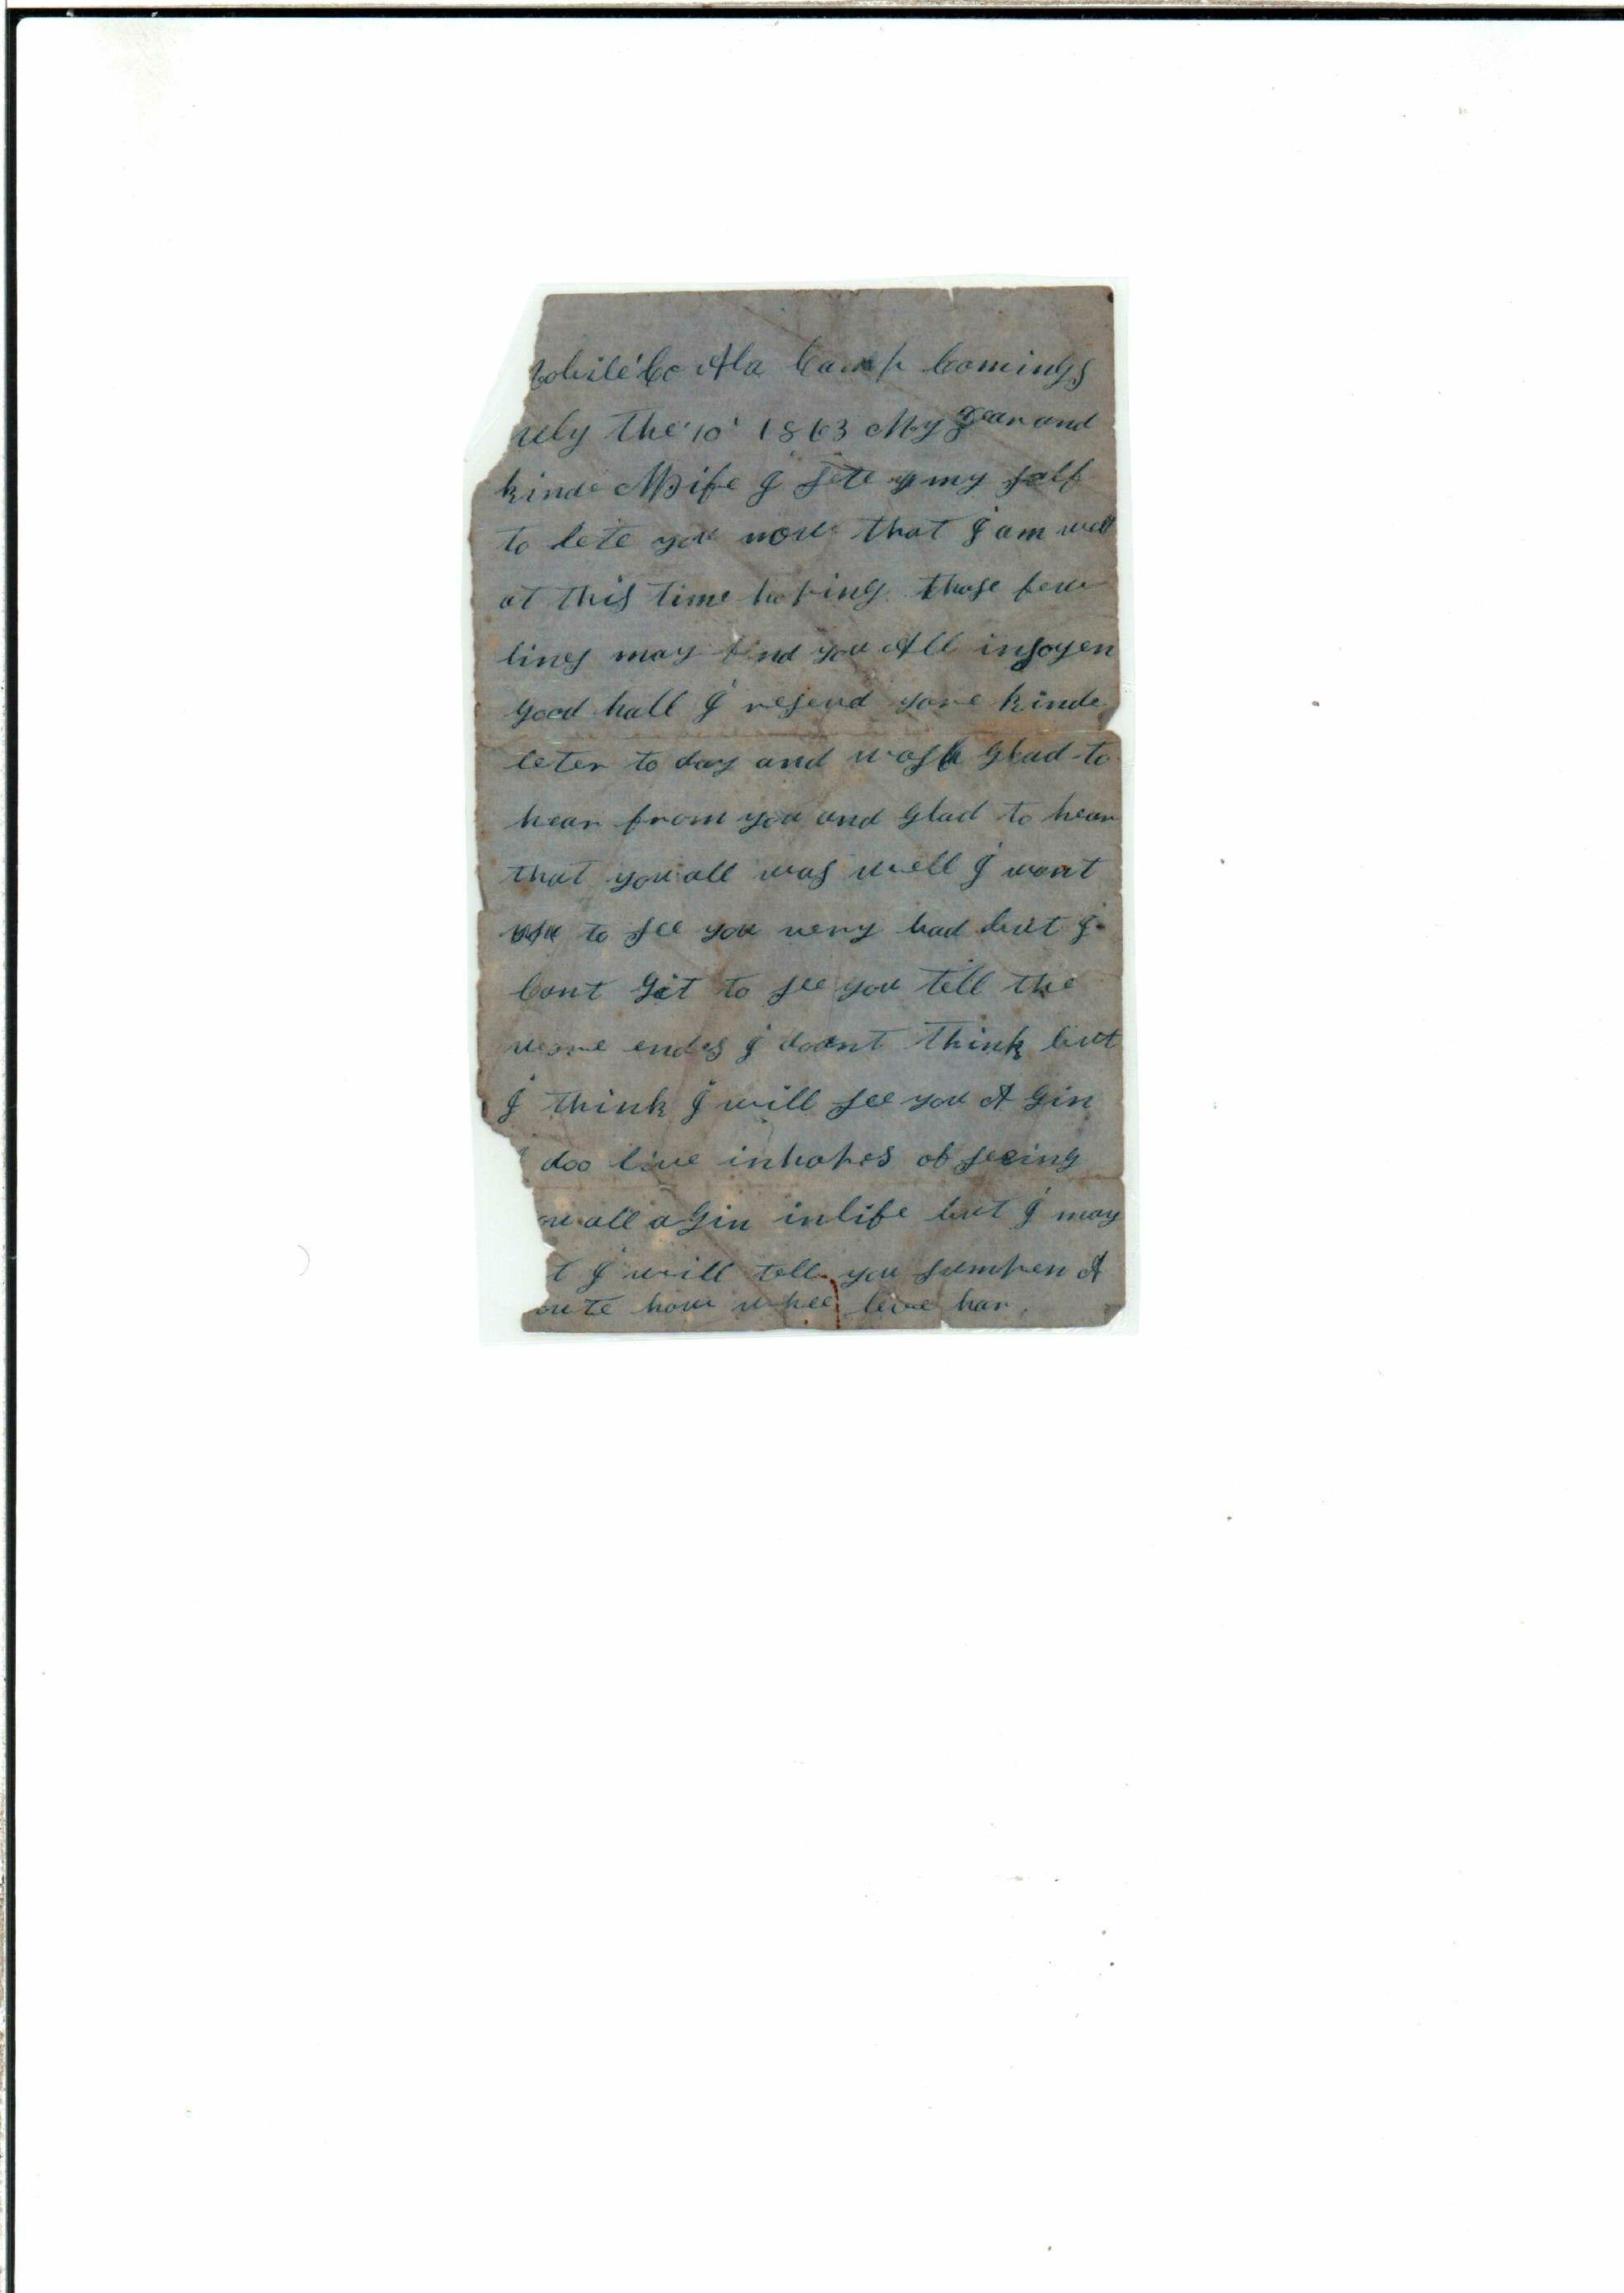 obile Co Ala Camp Comings
uly the 10 1863 My Dear and
kinde Wife I sete my self
to lete you now that I am well
at this time hoping those few
lines may find you All injoyen
good hall I resend yore kinde
leter to day and was glad to
hear from you and glad to hear
that you all was well I want
to see you very bad but I
Cant git to see you tell the
wore endes I doant think but
I think I will see you A gin
I doo live in hopes of seeing
ou all a gin in life but I may
t I will tell you sumpen A
oute how whee leve har